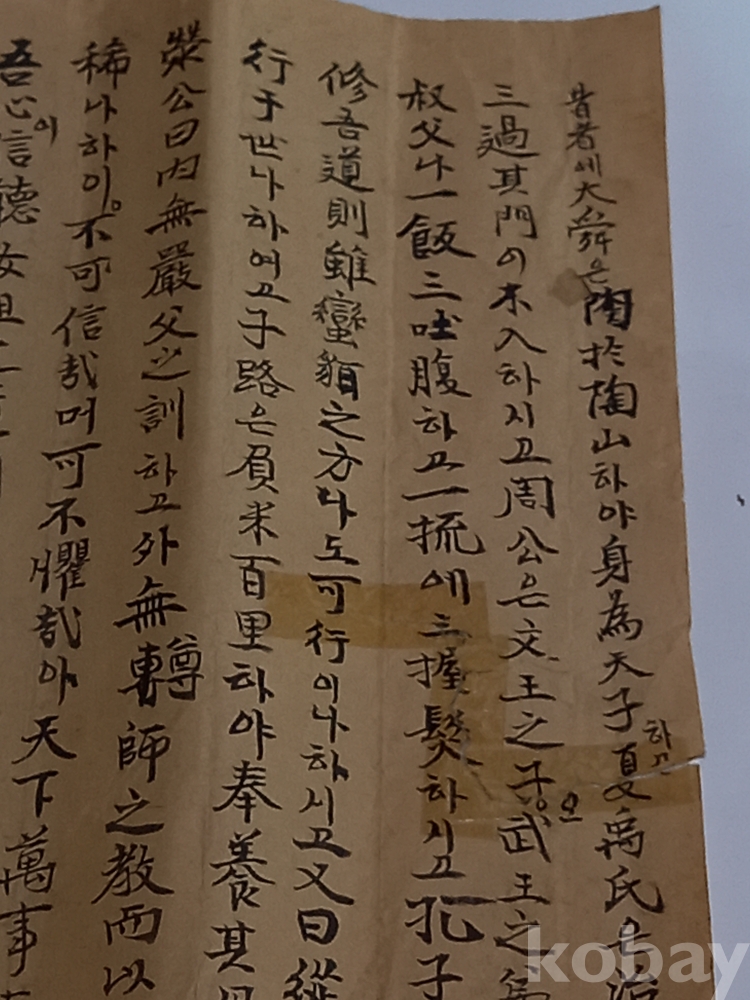 昔者에大舜은陶於陶山하야身為天子하고夏禹氏은治
三過其門이不入하시고周公은文王之子오武王之
叔父나一飯三吐腹하고一梳에三握髮하시고孔子
修吾道則雖蠻貊之方나도可行이나하시고又曰縱
行于世나하여고子路은負米百里하야奉養其
滎公曰內無嚴父之訓하고外無師之教而以
稀나하이。不可信哉며可不懼哉아天下萬事
吾心이言聽
kobay